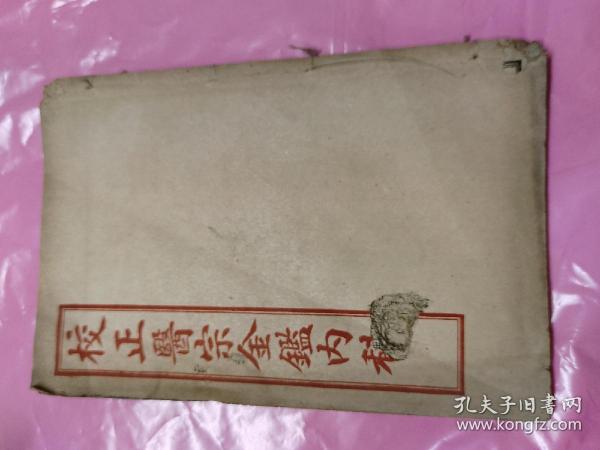 校正醫宗金鑑内科
孔夫子旧書网
www.kongfz.com